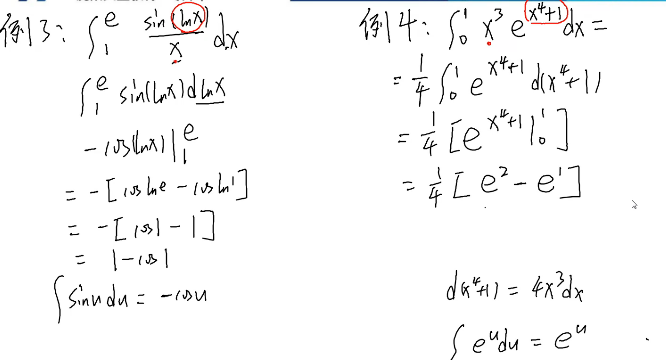 例13: ∫₁ᵉ sin(lnx)/x dx
∫₁ᵉ sin(lnx)dlnx
-cos(lnx)|₁ᵉ
= -[coslne - cosln1]
= -[cos1 - 1]
= 1-cos1
∫sinudu = -cosu
例14: ∫₀¹ x³ e^(x⁴+1) dx =
= 1/4 ∫₀¹ e^(x⁴+1) d(x⁴+1)
= 1/4 [e^(x⁴+1)|₀¹]
= 1/4 [e² - e¹]
d(x⁴+1) = 4x³dx
∫eᵘdu = eᵘ